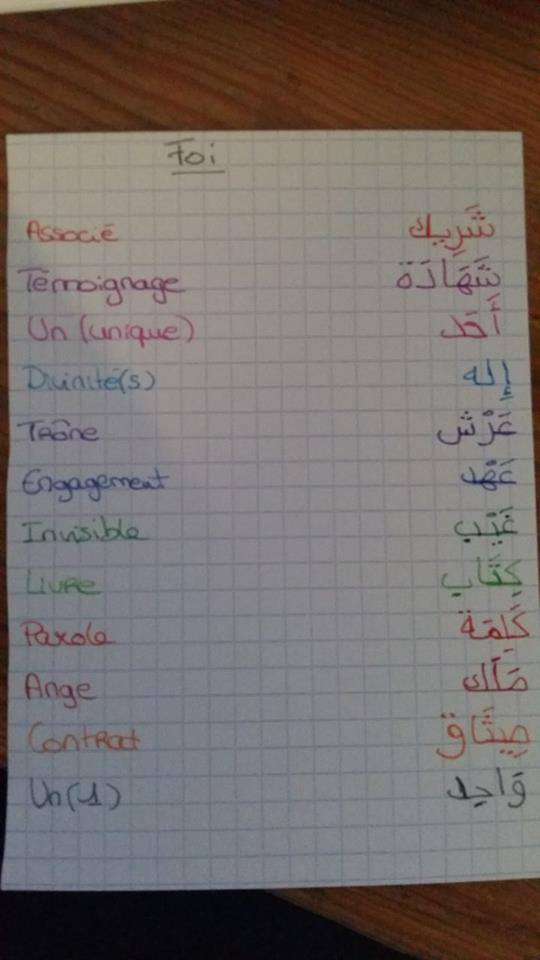 Foi
Associé شَرِيك
Témoignage شَهَادَة
Un (unique) أَحَد
Divinité(s) إِله
Trône عَرْش
Engagement عَهْد
Invisible غَيْب
Livre كِتَاب
Parole كَلِمَة
Ange مَلَك
Contrat مِيثَاق
Un (1) وَاحِد